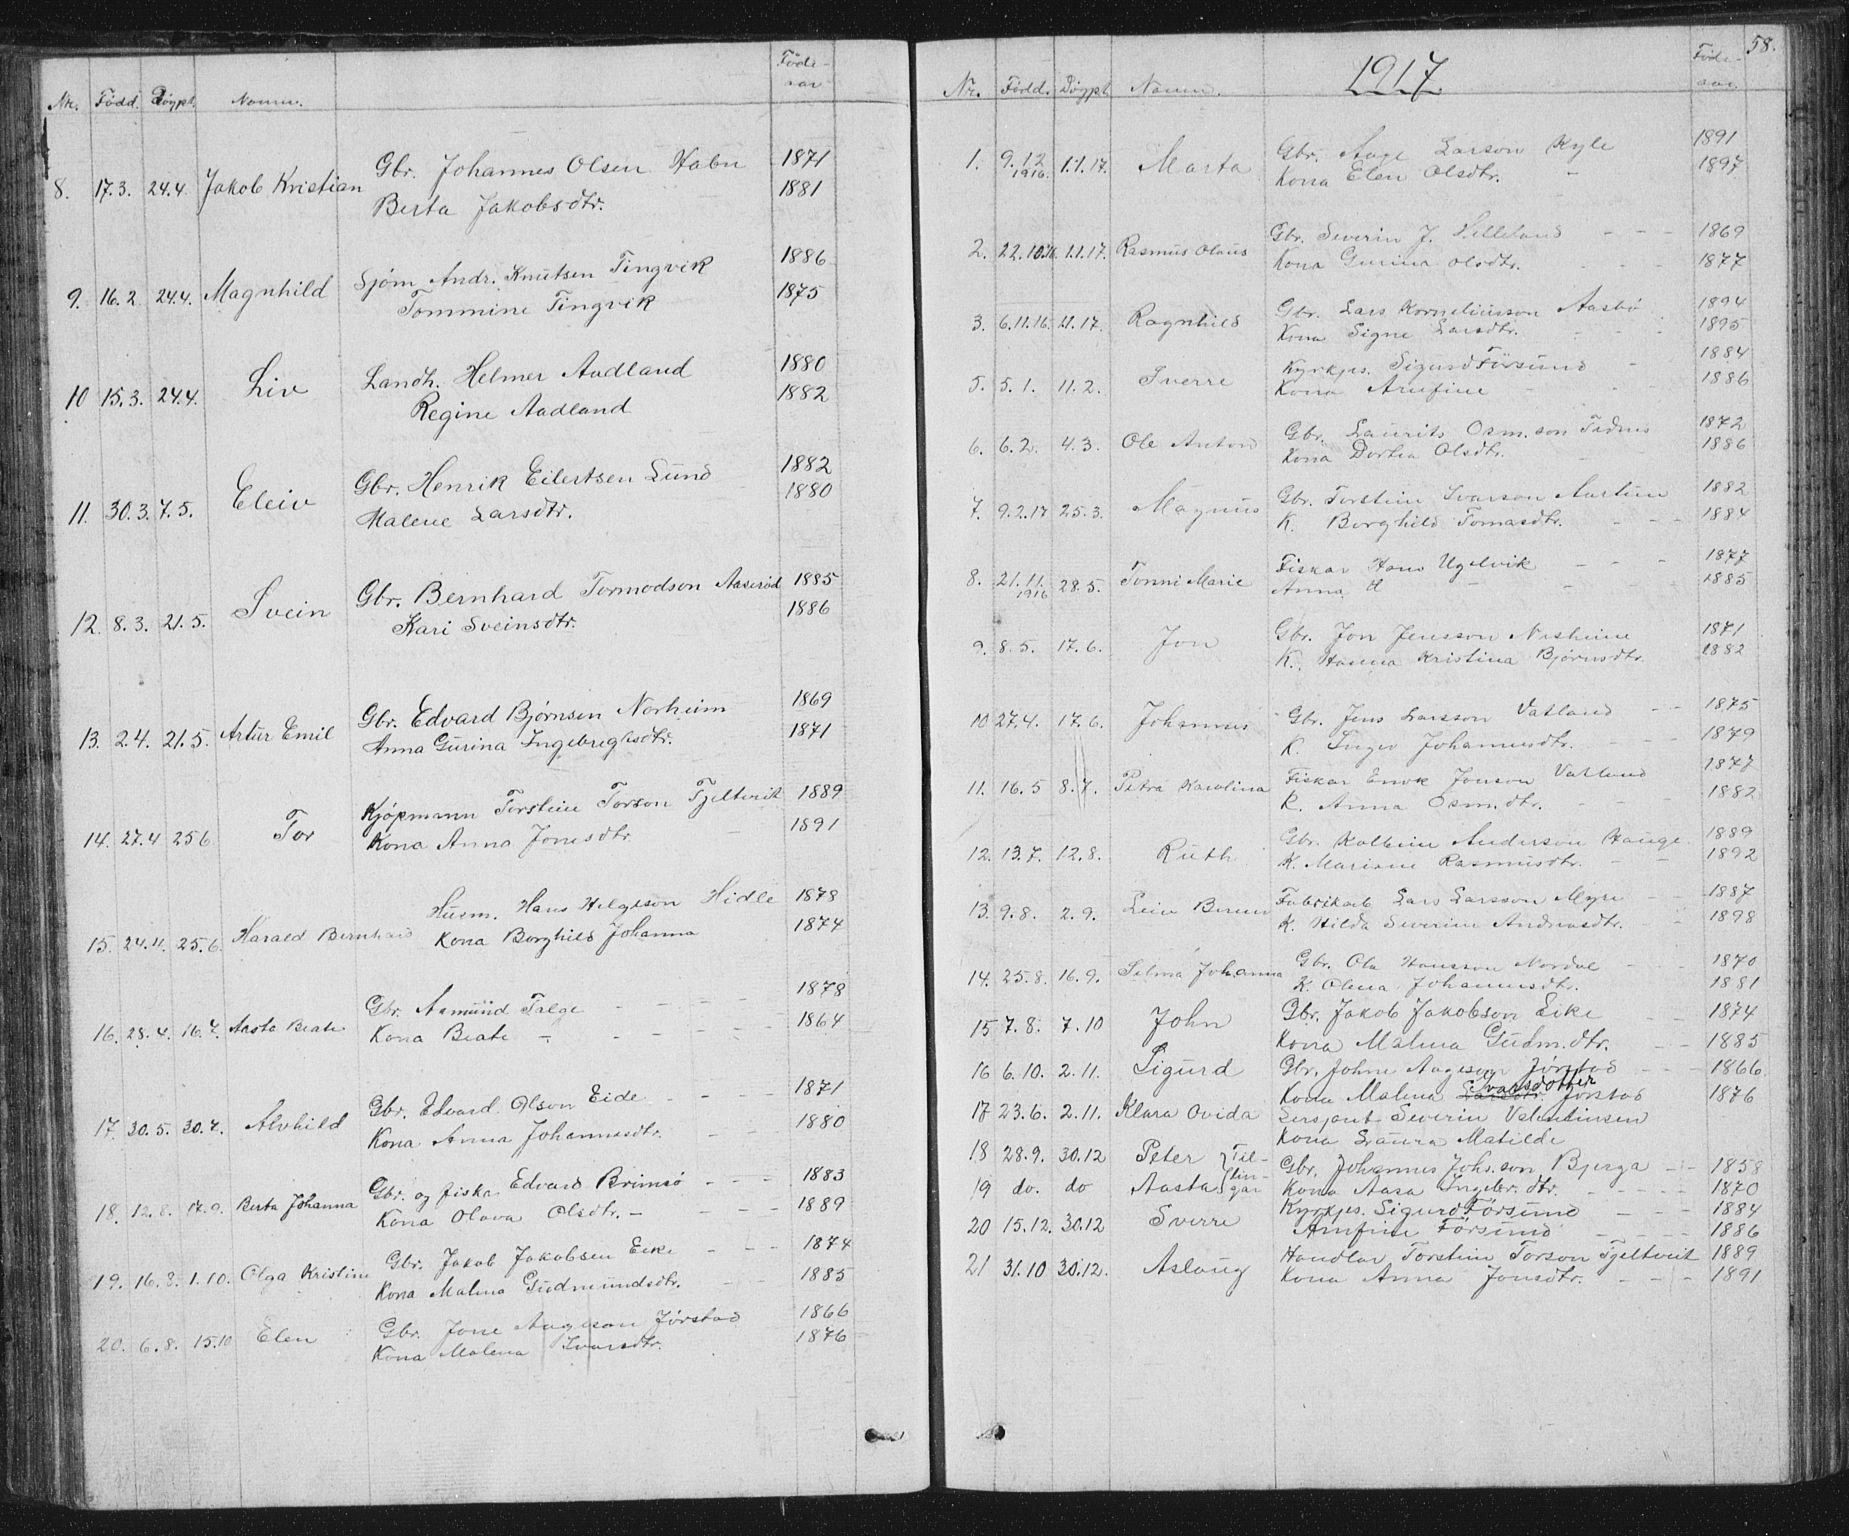 Nr. Född. Døypt. Namn. Föde-
aar
8. 17.3. 24.4. Jakob Kristian Gbr. Johannes Olsen Habn 1871
Berta Jakobsdtr. 1881
9. 16.2. 24.4. Magnhild Sjøm. Andr. Knutsen Tingvik 1886
Tommine Tingvik 1875
10 15.3. 24.4. Liv Landh. Helmer Aadland 1880
Regine Aadland 1882
11. 30.3. 7.5. Eleiv Gbr. Henrik Eilertsen Lund 1882
Malene Larsdtr. 1880
12. 8.3. 21.5. Svein Gbr. Bernhard Tormodson Aaserød 1885
Kari Sveinsdtr. 1886
13. 2.4. 21.5. Artur Emil Gbr. Edvard Bjørnsen Norheim 1869
Anna Gurina Ingebregtsdtr. 1871
14. 27.4 25 6 Tor Kjøpmann Torstein Torson Tjeltveit 1889
Kona Anna Jonsdtr. 1891
15. 24.4. 25.6. Harald Bernhard Husm. Hans Helgeson Hidle 1878
Kona Borghild Johanna 1874
16. 28.4. 16.7. Aasta Beate Gbr. Aamund Talge - - - - 1878
Kona Beate - - - - - 1864
17. 30.5. 30.7. Alvhild Gbr. Edvard Olson Eide - - - - 1871
Kona Anna Johannesdtr. - - 1880
18. 12.8. 17.9. Berta Johanna Gbr. og fiskar Edvard Brimsø - - - 1883
Kona Olava Olsdtr. - - - - 1889
19. 16.8. 1.10. Olga Kristine Gbr. Jakob Jakobsen Eike - - - 1874
Kona Malena Gudmundsdtr. - - 1885
20. 6.8. 15.10 Elen Gbr. Jone Aageson Jørstad 1866
Kona Malena Ivarsdtr. 1876
58.
1917.
Nr. Född. Døypt. Namn. Föde-
aar.
1. 9.12 1916. 1.1.17. Marta Gbr. Aage Larson Kyle 1891
Kona Elen Olsdtr. - 1897
2. 22.10.16. 1.1.17. Rasmus Olaus Gbr. Severin J. Helleland - - - 1869
Kona Gurina Olsdtr. - - - 1877
3. 6.11.16. 1.1.17. Ragnhild Gbr. Lars Korneliusson Aasbø 1894
Kona Signe Larsdtr. - - - 1895
5. 5.1. 11.2. Sverre Kyrkjes. Sigurd Försund - 1884
Kona Arnfine - - - 1886
6. 6.2. 4.3. Ole Anton Gbr. Laurits Osm.son Tednes 1872
Kona Dortea Olsdtr. - 1886
7. 9.2.17 25.3. Magnus Gbr. Torstein Ivarson Aartun 1882
K. Borghild Tomasdtr. - - - 1884
8. 21.11. 1916 28.5. Tonni Marie Fiskar Hans Ugelvik - - - 1877
Anna d - - - 1885
9. 8.5. 17.6. Jon Gbr. Jon Jensson Nesheim 1871
K. Hanna Kristina Bjørnsdtr. 1882
10 27.4. 17.6. Johannes Gbr. Jens Larsson Vatland - - 1875
K. Inger Johannesdtr. - - - 1879
11. 16.5 8.7. Petra Karolina Fiskar Enok Jonson Vatland 1877
K. Anna Osm.dtr. - - - 1882
12. 13.7. 12.8. Ruth Gbr. Kolbein Anderson Hauge 1889
K. Mariane Rasmusdtr. - - 1892
13. 9.8. 2.9. Leiv Fabrikarb Lars Larsson Myre - - 1887
K. Hilda Severine Andreasdtr. - - 1898
14. 25.8. 16.9. Selma Johanna Gbr. Ola Hansson Nordal - - 1870
K. Olena Johannesdtr. - 1881
15 7.8. 7.10 John Gbr. Jakob Jakobson Eike - - 1874
Kona Malena Gudm.dtr. - - 1885
16 6.10. 2.11. Sigurd Gbr. Johne Aageson Jørstad - - - 1866
Kona Malena Larsdtr. Ivarsdotter Jørstad 1876
17 23.6. 2.11. Klara Ovida Sersjant Severin Valentinsen
Kona Laura Matilde
18 28.9. 30.12 Peter } Til- Gbr. Johannes Johs.son Bjerga - - 1858
19 do. do Aasta } lingar Kona Aasa Ingebr.dtr. - - - - 1870
20 15.12. 30.12 Sverre Kyrkjes. Sigurd Försund - - - 1884
Arnfine Försund - - - - 1886
21 31.10 30.12. Aslaug Handlar Torstein Torson Tjeltveit 1889
Kona Anna Jonsdtr. - - - - 1891